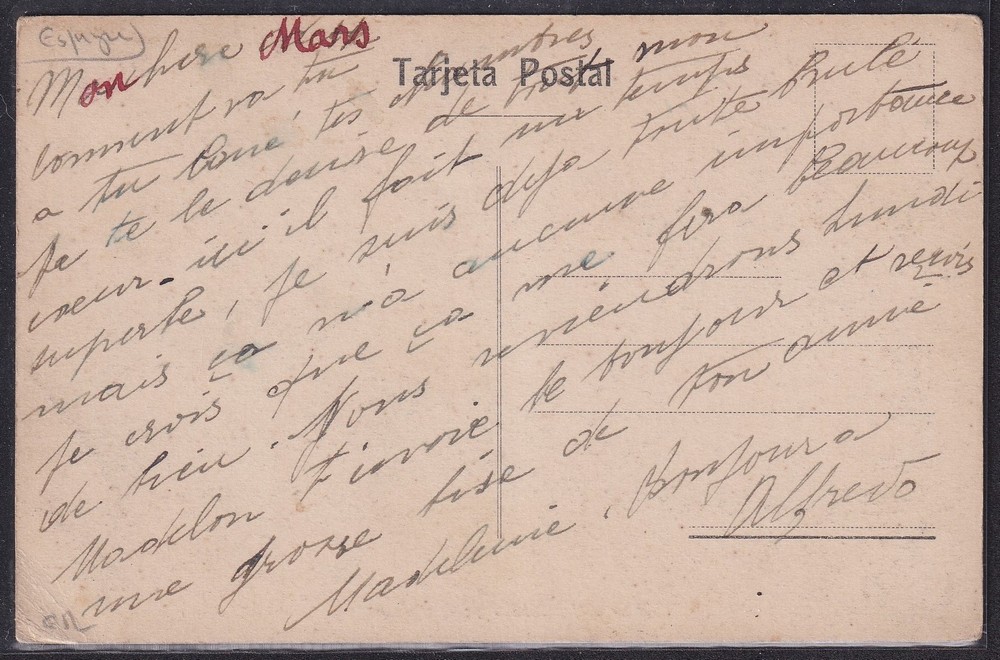 Espagne
Tarjeta Postal
Mon chere Mars
comment va, tu
a tu bonne, tes chambres
je te le desire de tout mon
coeur. ici il fait un temps
superbe, je suis deja toute brulé
mais ça n'a aucune importance
je crois que ça me fera Beaucoup
de bien. Nous reviendrons Lundi
Madelon t'envoie le bonjour et reçois
une grosse bise de ton amie
Madeleine, Bonjour a
Alfredo